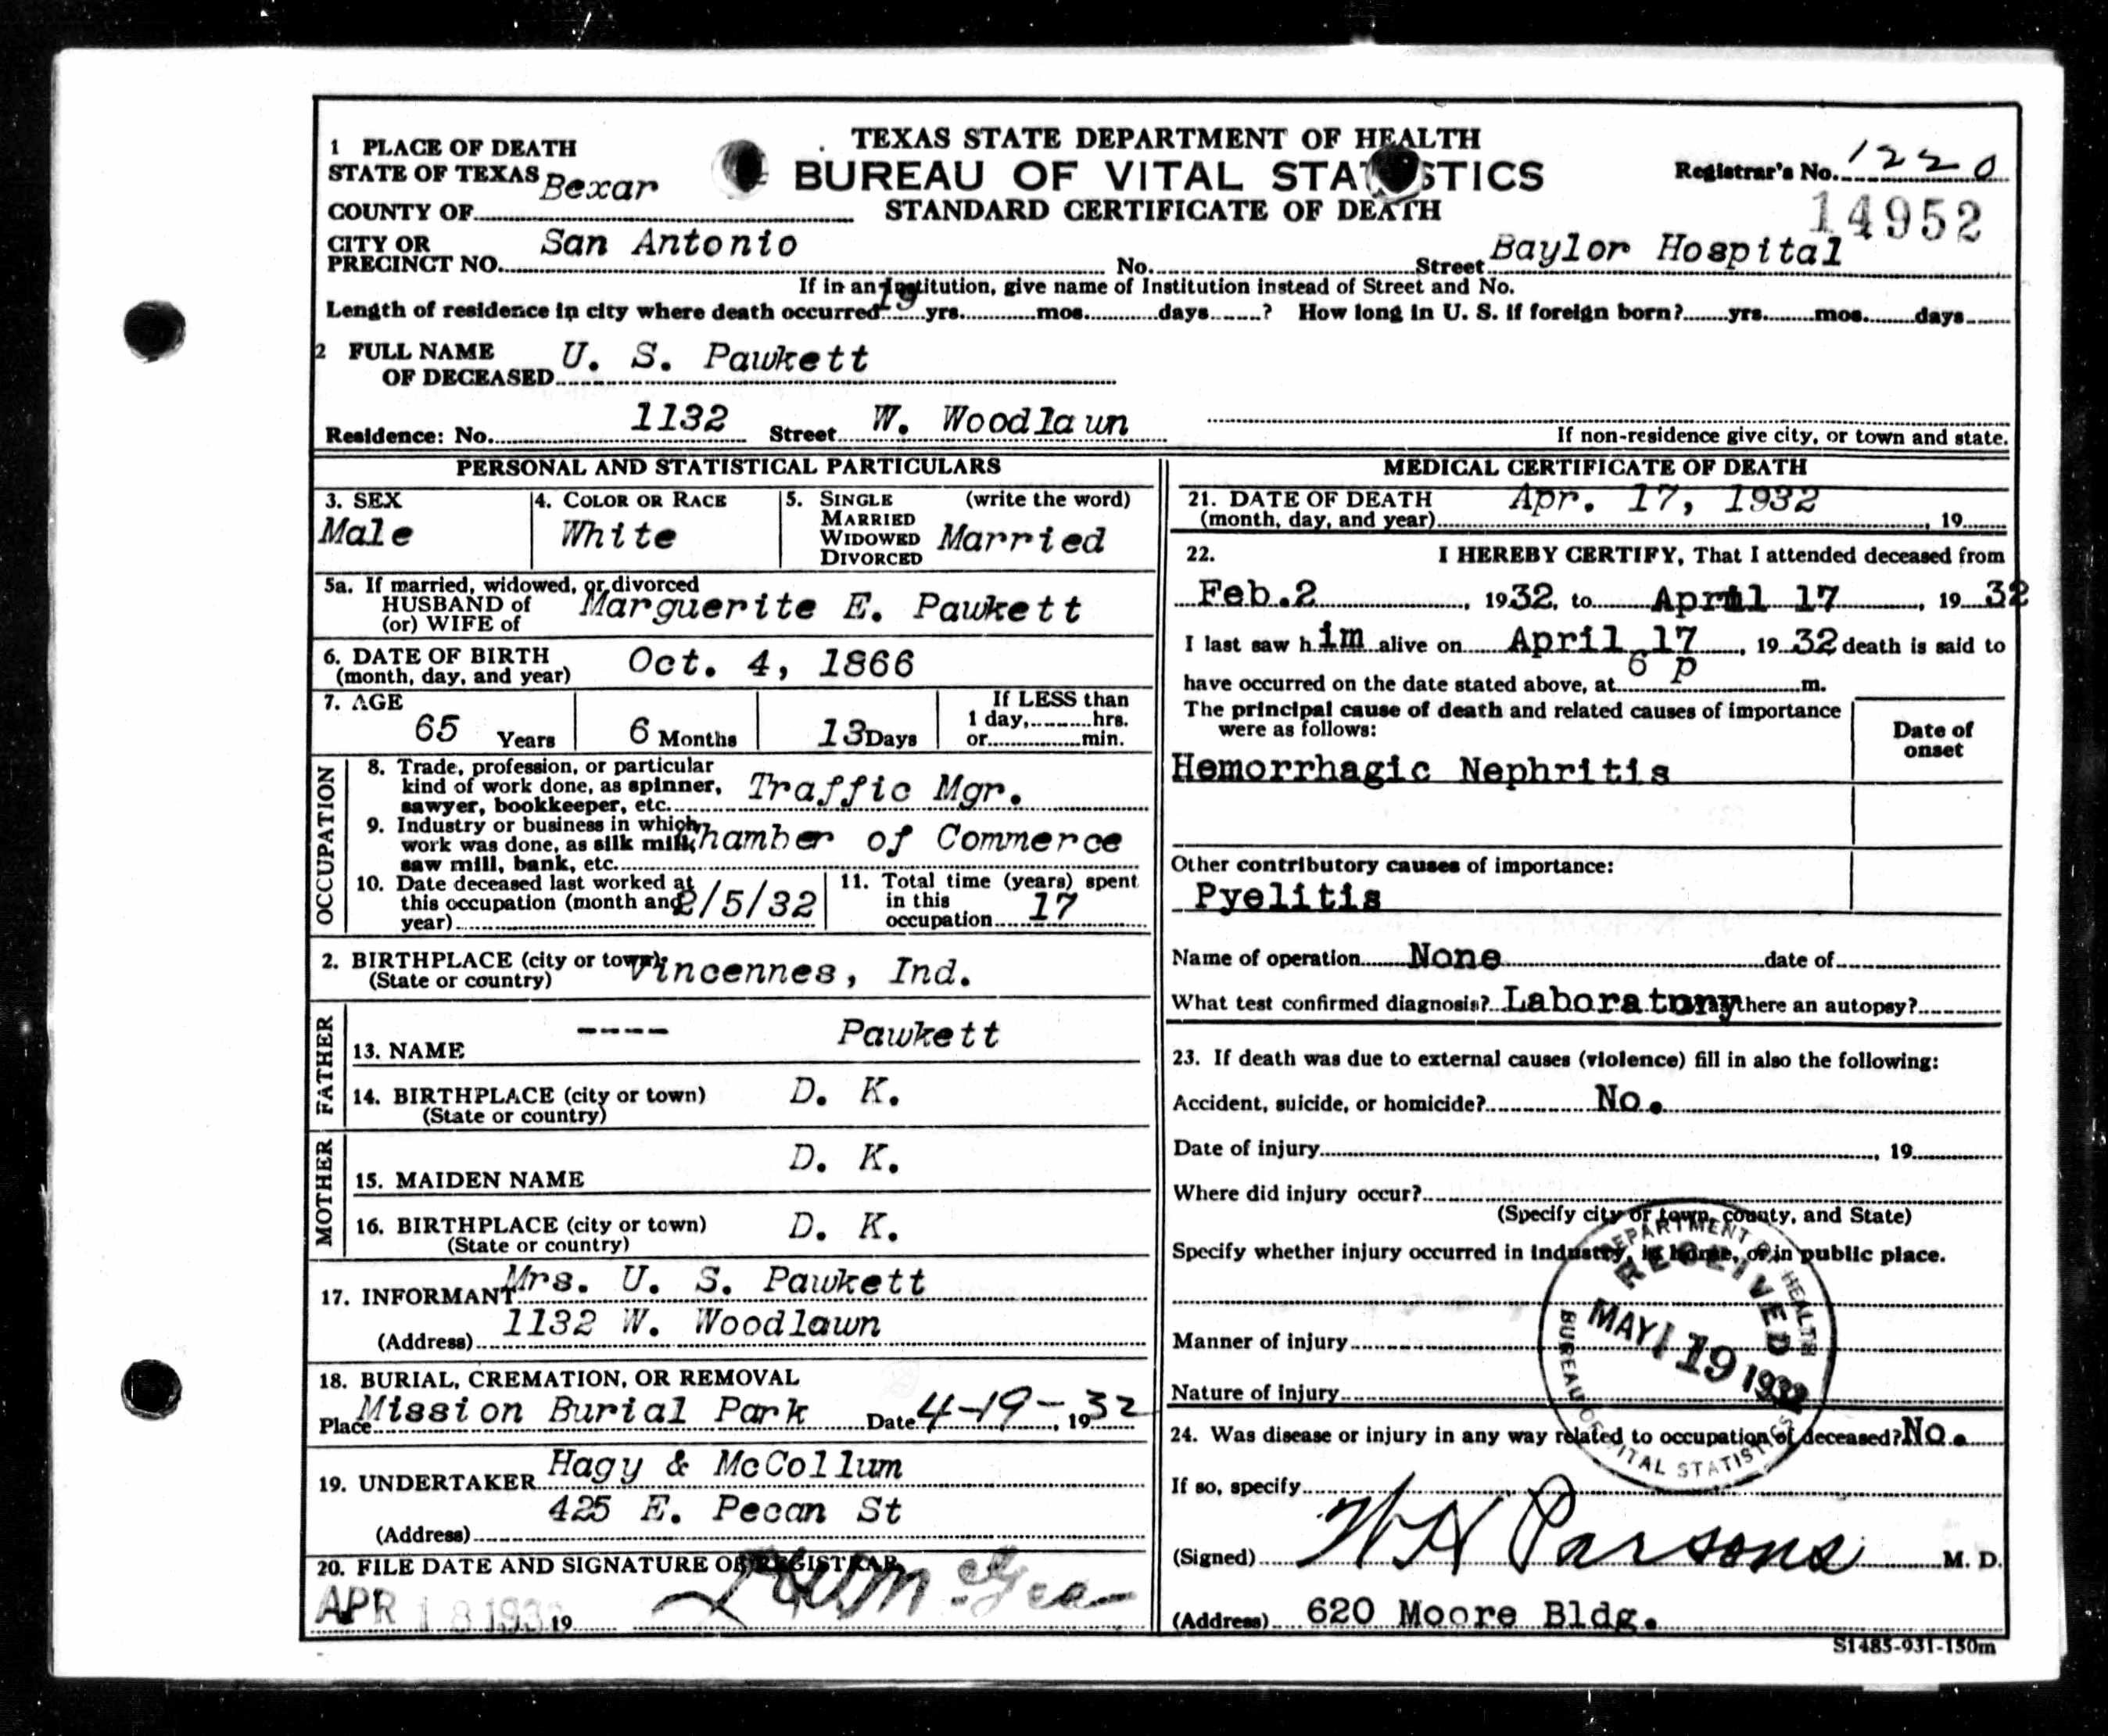 TEXAS STATE DEPARTMENT OF HEALTH
BUREAU OF VITAL STATISTICS
STANDARD CERTIFICATE OF DEATH
Registrar's No. 1220
14952
1 PLACE OF DEATH
STATE OF TEXAS
COUNTY OF Bexar
CITY OR PRECINCT NO. San Antonio No. Street Baylor Hospital
If in an institution, give name of Institution instead of Street and No.
Length of residence in city where death occurred 19 yrs. mos. days ? How long in U. S. if foreign born? yrs. mos. days
2 FULL NAME OF DECEASED U. S. Pawkett
Residence: No. 1132 Street W. Woodlaun
If non-residence give city, or town and state.
PERSONAL AND STATISTICAL PARTICULARS
3. SEX
Male
4. COLOR OR RACE
White
5. SINGLE MARRIED WIDOWED DIVORCED (write the word)
Married
5a. If married, widowed, or divorced
HUSBAND of
(or) WIFE of
Marguerite E. Pawkett
6. DATE OF BIRTH
(month, day, and year)
Oct. 4, 1866
7. AGE
65 Years 6 Months 13 Days
If LESS than
1 day, hrs.
or min.
OCCUPATION
8. Trade, profession, or particular
kind of work done, as spinner,
sawyer, bookkeeper, etc.
Traffic Mgr.
9. Industry or business in which
work was done, as silk mill,
saw mill, bank, etc.
hamber of Commerce
10. Date deceased last worked at
this occupation (month and
year)
2/5/32
11. Total time (years) spent
in this
occupation 17
2. BIRTHPLACE (city or town)
(State or country)
Vincennes, Ind.
FATHER
13. NAME ---- Pawkett
14. BIRTHPLACE (city or town)
(State or country)
D. K.
MOTHER
15. MAIDEN NAME D. K.
16. BIRTHPLACE (city or town)
(State or country)
D. K.
17. INFORMANT Mrs. U. S. Pawkett
(Address) 1132 W. Woodlawn
18. BURIAL, CREMATION, OR REMOVAL
Place Mission Burial Park Date 4-19-, 1932
19. UNDERTAKER Hagy & McCollum
(Address) 425 E. Pecan St
20. FILE DATE AND SIGNATURE OF REGISTRAR
APR 18 193 19
MEDICAL CERTIFICATE OF DEATH
21. DATE OF DEATH
(month, day, and year)
Apr. 17, 1932 , 19
22. I HEREBY CERTIFY, That I attended deceased from
Feb.2, 1932, to April 17, 1932
I last saw him alive on April 17, 1932 death is said to
have occurred on the date stated above, at 6 p m.
The principal cause of death and related causes of importance
were as follows:
Date of
onset
Hemorrhagic Nephritis
Other contributory causes of importance:
Pyelitis
Name of operation None date of
What test confirmed diagnosis? Laboratory was there an autopsy?
23. If death was due to external causes (violence) fill in also the following:
Accident, suicide, or homicide? No.
Date of injury , 19
Where did injury occur?
(Specify city or town, county, and State)
Specify whether injury occurred in industry, in home, or in public place.
Manner of injury
Nature of injury
DEPARTMENT OF HEALTH
RECEIVED
MAY 19 1932
BUREAU OF VITAL STATISTICS
24. Was disease or injury in any way related to occupation of deceased? No.
If so, specify
(Signed) W H Parsons M. D.
(Address) 620 Moore Bldg.
S1485-931-150m